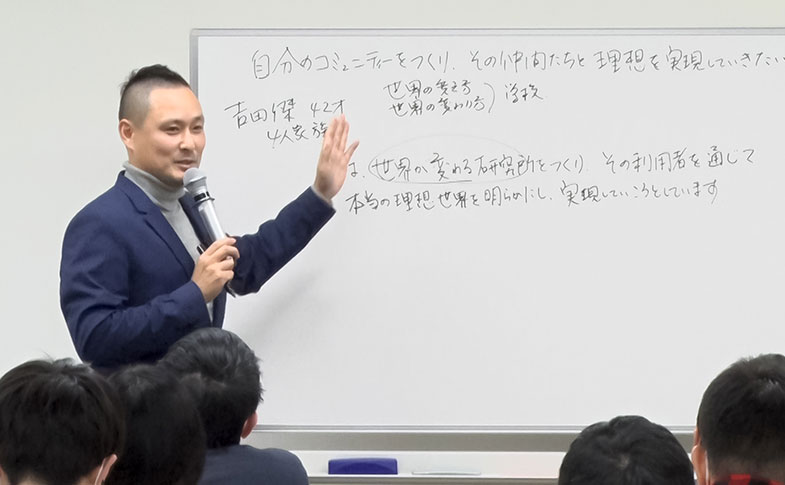 自分のコミュニティーをつくり、その仲間たちと理想を実現していきたい
世界の変え方
世界の変わり方
学校
吉田傑 42才
4人家族
は、世界が変わる研究所をつくり、その利用者を通じて
本当の理想世界を明らかにし、実現していこうとしています